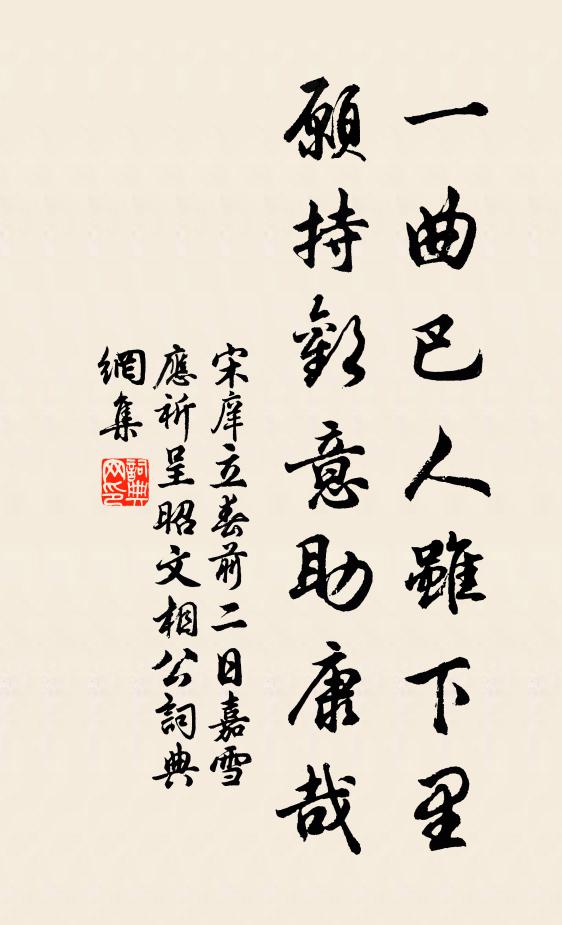 一曲巴人雖下里
願持歡意助康哉
宋庠立春前二日嘉雪
應祈呈昭文相公詞典
網集
詞典網印